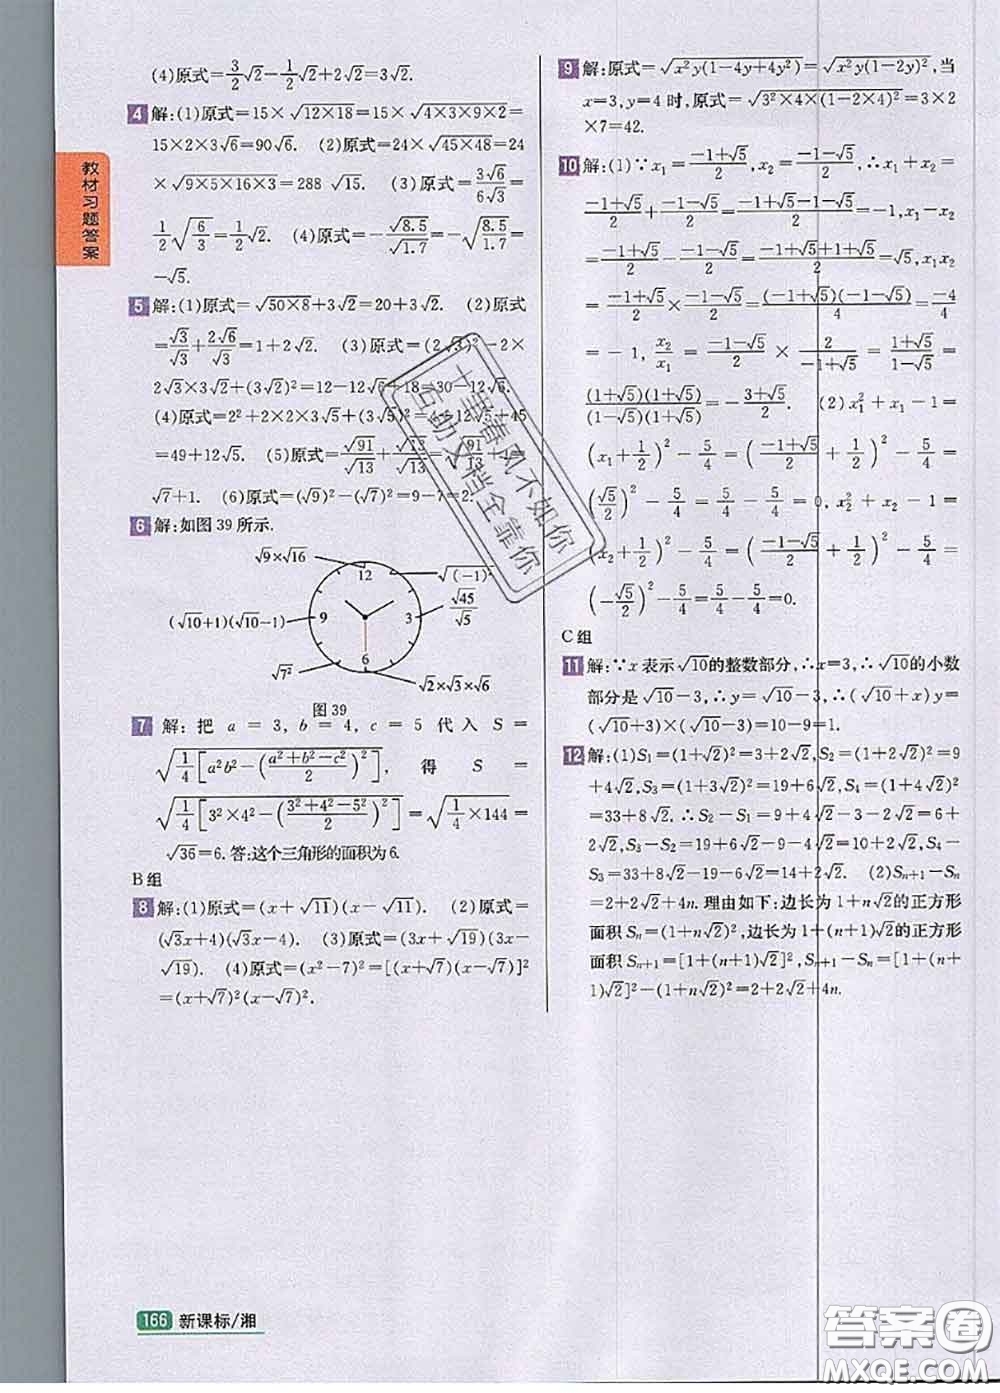 教材习题答案
(4)原式=3/2√2-1/2√2+2√2=3√2.
4 解:(1)原式=15×√(12×18)=15×√(4×3×9×2)=
15×2×3√6=90√6. (2)原式=24×√(45×48)=24
×√(9×5×16×3)=288 √15. (3)原式=3√6/6√3=
1/2√(6/3)=1/2√2. (4)原式=-√8.5/√1.7=-√(8.5/1.7)=
-√5.
5 解:(1)原式=√(50×8)+3√2=20+3√2. (2)原式
=√3/√3+2√6/√3=1+2√2. (3)原式=(2√3)²-2×
2√3×3√2+(3√2)²=12-12√6+18=30-12√6.
(4)原式=2²+2×2×3√5+(3√5)²=4+12√5+45
=49+12√5. (5)原式=√91/√13+√13/√13=√(91/13)+1=
√7+1. (6)原式=(√9)²-(√7)²=9-7=2.
6 解:如图 39 所示.
√9×√16
12
√(-1)²
√45/√5
(√10+1)(√10-1)
9
3
6
√7²
√2×√3×√6
图 39
7 解: 把 a = 3, b = 4, c = 5 代 入 S =
√(1/4[a²b²-((a²+b²-c²)/2)²]), 得 S =
√(1/4[3²×4²-((3²+4²-5²)/2)²])=√(1/4×144)=
√36=6. 答:这个三角形的面积为 6.
B 组
8 解:(1)原式=(x+√11)(x-√11). (2)原式=
(√3x+4)(√3x-4). (3)原式=(3x+√19)(3x-
√19). (4)原式=(x²-7)²=[(x+√7)(x-√7)]²
=(x+√7)²(x-√7)².
9 解:原式=√(x²y(1-4y+4y²))=√(x²y(1-2y)²),当
x=3,y=4 时,原式=√(3²×4×(1-2×4)²)=3×2
×7=42.
10 解:(1)∵x₁=(-1+√5)/2,x₂=(-1-√5)/2,∴x₁+x₂=
(-1+√5)/2+(-1-√5)/2=(-1+√5-1-√5)/2=-1,x₁-x₂
=(-1+√5)/2-(-1-√5)/2=(-1+√5+1+√5)/2=√5,x₁x₂
=(-1+√5)/2×(-1-√5)/2=(-1+√5)(-1-√5)/4=-4/4
=-1,x₂/x₁=(-1-√5)/2×2/(-1+√5)=(1+√5)/(1-√5)=
(1+√5)(1+√5)/(1-√5)(1+√5)=(-3+√5)/2. (2)x₁²+x₁-1=
(x₁+1/2)²-5/4=((-1+√5)/2+1/2)²-5/4=
(√5/2)²-5/4=5/4-5/4=0,x₂²+x₂-1=
(x₂+1/2)²-5/4=((-1-√5)/2+1/2)²-5/4=
(-√5/2)²-5/4=5/4-5/4=0.
C 组
11 解:∵x 表示√10的整数部分,∴x=3,∴√10的小数
部分是√10-3,∴y=√10-3,∴(√10+x)y=
(√10+3)×(√10-3)=10-9=1.
12 解:(1)S₁=(1+√2)²=3+2√2,S₂=(1+2√2)²=9
+4√2,S₃=(1+3√2)²=19+6√2,S₄=(1+4√2)²
=33+8√2.∴S₂-S₁=9+4√2-3-2√2=6+
2√2,S₃-S₂=19+6√2-9-4√2=10+2√2,S₄-
S₃=33+8√2-19-6√2=14+2√2. (2)Sₙ₊₁-Sₙ
=2+2√2+4n. 理由如下:边长为 1+n√2的正方形
面积 Sₙ=(1+n√2)²,边长为 1+(n+1)√2的正方形
面积 Sₙ₊₁=[1+(n+1)√2]²,Sₙ₊₁-Sₙ=[1+(n+
1)√2]²-(1+n√2)²=2+2√2+4n.
十里春风不如你
互助文档全靠你
166 新课标/湘
答案圈
MXQE.COM